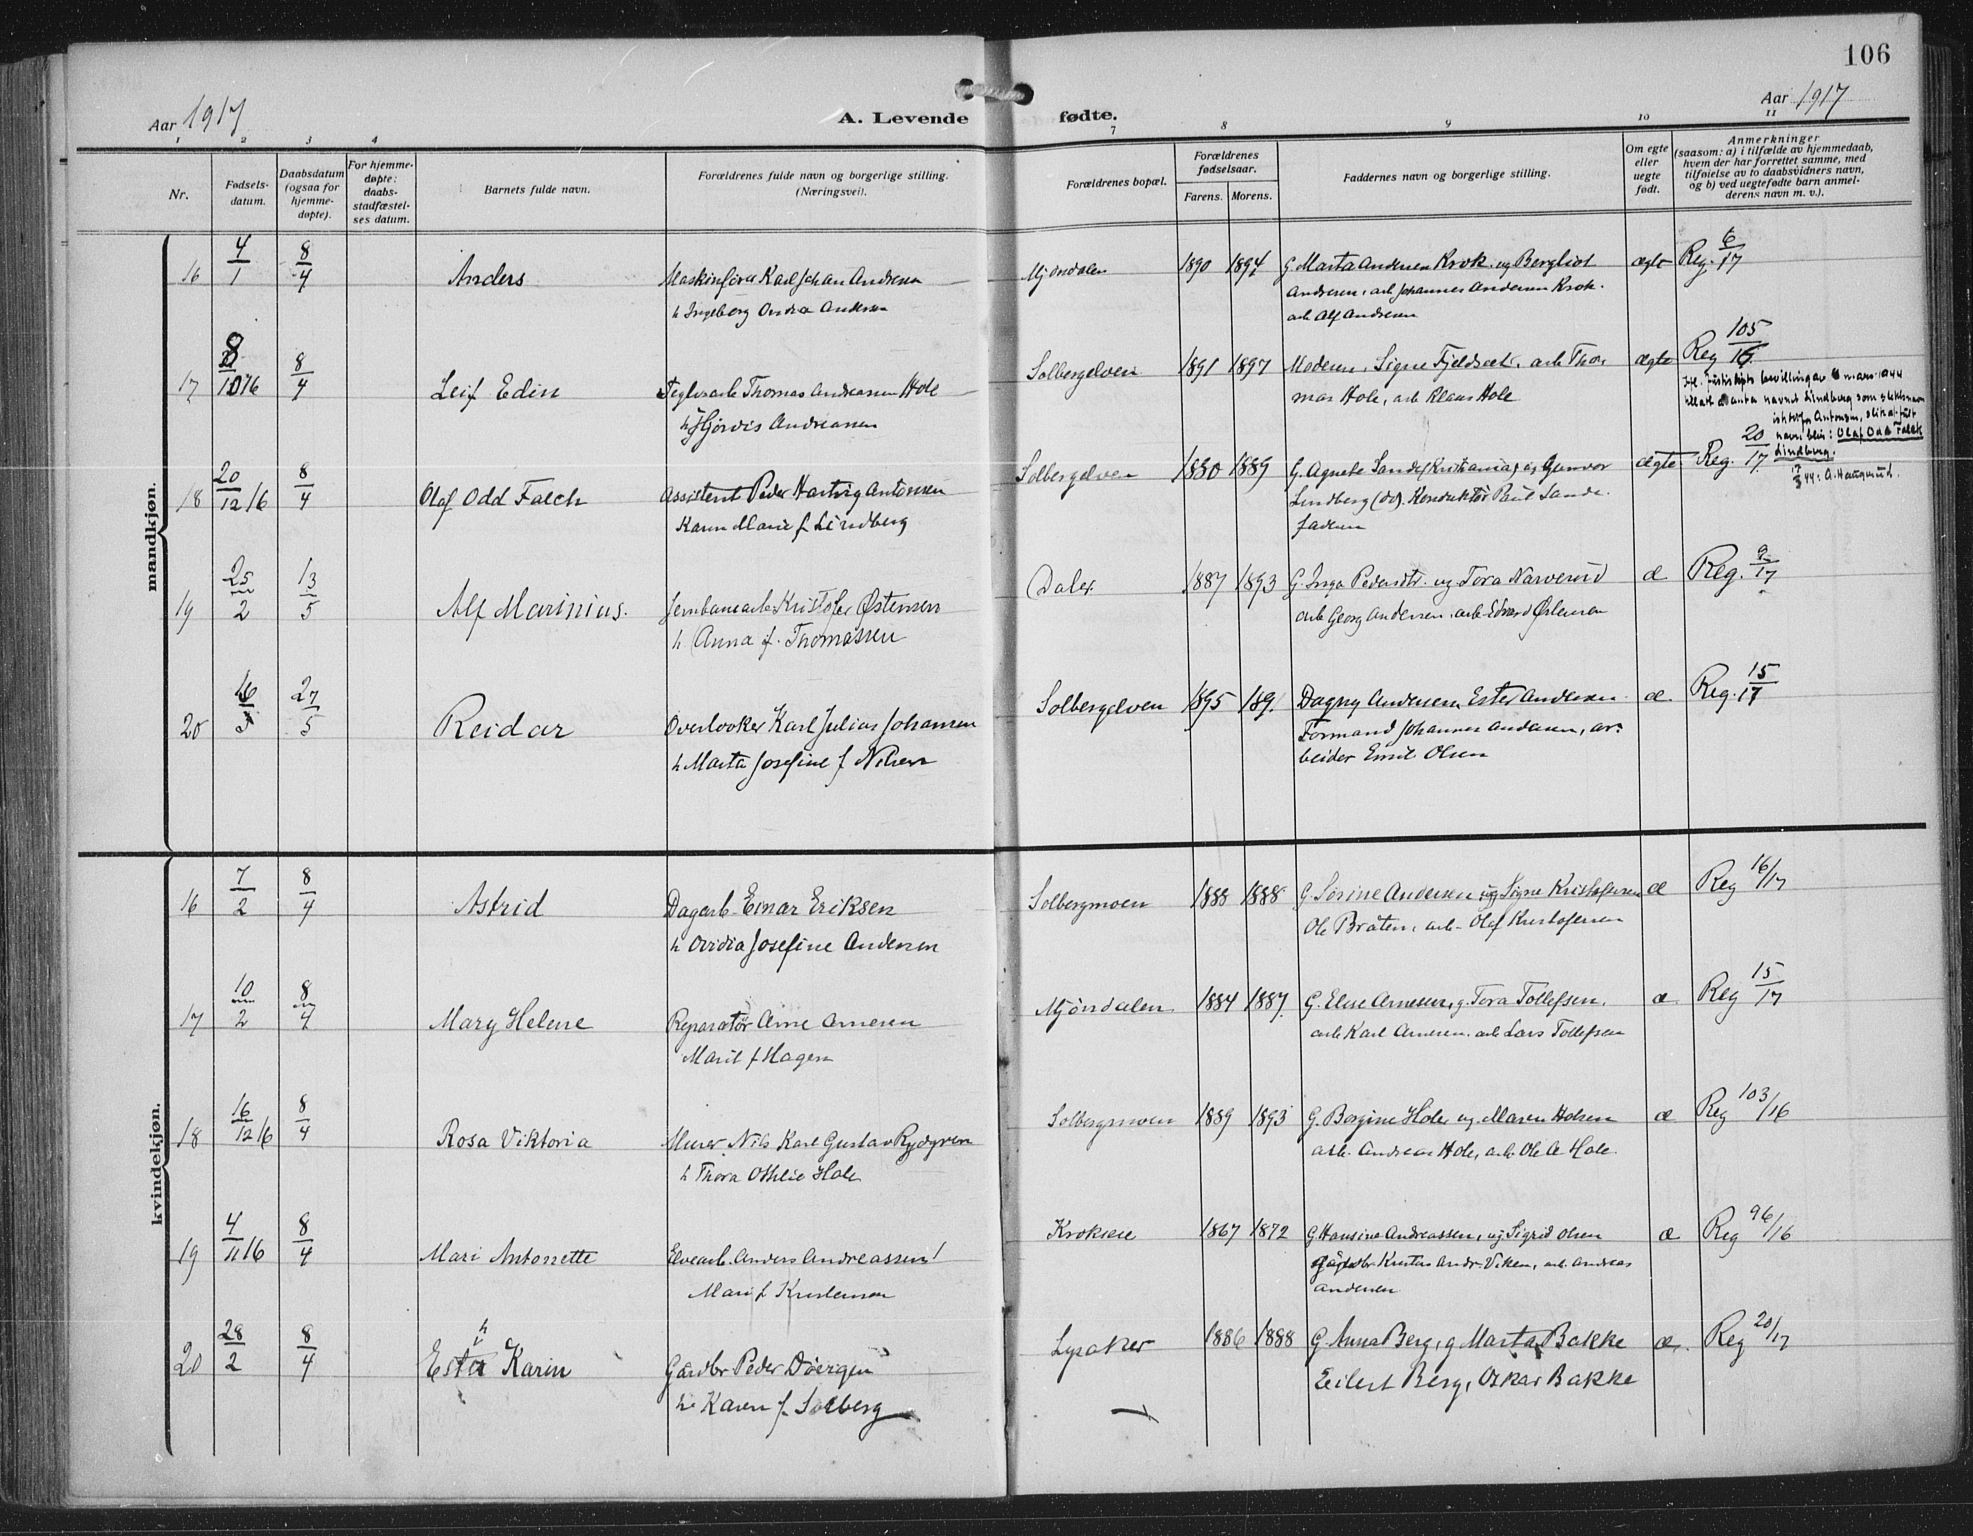 106
Aar 1917
A. Levende fødte.
Aar 1917
1 2 3 4 7 8 9 10 11
Nr.
Fødsels-
datum.
Daabsdatum
(ogsaa for
hjemme-
døpte).
For hjemme-
døpte:
daabs-
stadfæstel-
ses datum.
Barnets fulde navn.
Forældrenes fulde navn og borgerlige stilling.
(Næringsvei).
Forældrenes bopæl.
Forældrenes
fødselsaar.
Farens. Morens.
Faddernes navn og borgerlige stilling.
Om egte
eller
uegte
født.
Anmerkninger
(saasom: a) i tilfælde av hjemmedaab,
hvem der har forrettet samme, med
tilføielse av to daabsvidners navn,
og b) ved uegtefødte barn anmel-
derens navn m. v.).
mandkjøn.
16 4/1 8/4 Anders Maskinfører Karl Johan Andersen Mjöndalen 1890 1894 G. Marta Andersen Krok og Bergliot ægte Reg. 6/17
h Ingeborg Andrea Andersen Andersen, arb Johannes Andersen Krok.
arb Alf Andersen
17 8/10 16 8/4 Leif Edin Teglverarb Thomas Andreassen Hole Solbergelven 1891 1897 Moderen, Signe Fjeldsæt, arb Tho- ægte Reg 105/16
h Hjördis Andreassen mas Hole, arb Klaus Hole
mars 1944
navnet Lindberg som slektsnavn
istedenfor Antonsen, slik at fullt
navn blir: Olaf Odd Falck
Lindberg.
44: A. Haugerud.
18 20/12 16 8/4 Olaf Odd Falch Assistent Peder Hartvig Antonsen Solbergelven 1880 1889 G. Agnete Sande (Kristiania) og Gunvor ægte Reg. 20/17
Karen Marie f Lindberg Lindberg (do). Konduktör Paul Sande.
faderen
19 25/2 13/5 Alf Marinius. Jernbanearb Kristofer Østensen Daler 1887 1893 G. Inga Pedersdtr. og Tora Narverud æ Reg. 9/17
h Anna f. Thomassen arb Georg Andersen. arb Edvard Østensen
20 27/5 Reidar Overlooker Karl Julius Johansen Solbergelven 1895 189 Dagny Andersen, Ester Andersen æ Reg. 15/17
h Marta Josefine f Nilsen Formand Johannes Andersen, ar-
beider Emil Olsen
kvindekjøn.
16 7/2 8/4 Astrid Dagarb. Einar Eriksen Solbergmoen 1888 1888 G Sorine Andersen og Signe Kristofersen æ Reg 16/17
h Ovidia Josefine Andersen Ole Bråten, arb- Olaf Kristofersen
17 10/2 8/4 Mary Helene Reparatør Arne Arnesen Mjöndalen 1884 1887 G. Elise Arnesen, g. Tora Tollefsen. æ Reg 15/17
Marit f Hagen arb Karl Arnesen. arb Lars Tollefsen
18 16/12 16 8/4 Rosa Viktoria Murer. Nils Karl Gustav Rydgren Solbergmoen 1889 1893 G. Borgine Hole og Maren Holsen æ Reg 103/16
h Thora Othlie Hole arb. Andreas Hole, arb Ole A Hole
19 4/11 16 8/4 Mari Antonette Elvearb. Anders Andreassen Krokseie 1867 1872 G Hansine Andreassen, og Sigrid Olsen æ Reg 96/16
Mari f Kristensen gårdbr Kristas Andr. Viken, arb. Andreas
Andersen
20 28/2 8/4 Ester Karin Gårdbr Peder Döergen Lysaker 1886 1888 G Anna Berg, g Marta Bakke æ. Reg 20/17
h. Karen f. Solberg Eilert Berg, Oskar Bakke